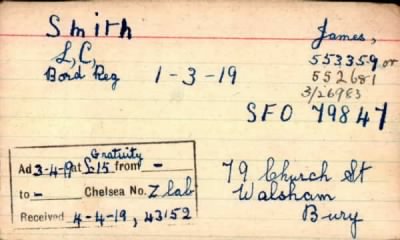 Smith James,
L, C, 553359 or
Bord Reg 1-3-19 552681
3/26983
SFO 79847
Gratuity
Ad 3-4-19 at £15 from -
to - Chelsea No. Z lab
Received 4-4-19, 43152
79 Church St
Walsham
Bury